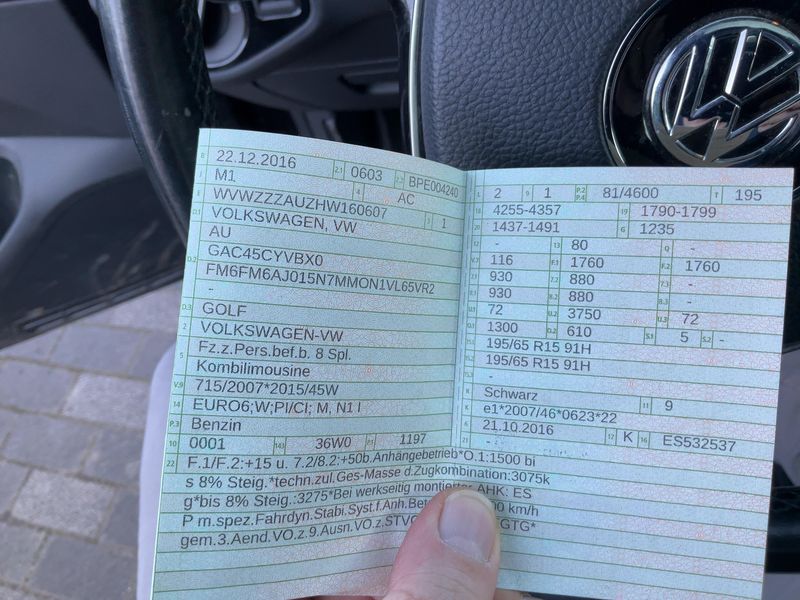 B 22.12.2016 2.1 0603 2.2 BPE004240
J M1 4 AC
E WVWZZZAUZHW160607 3 1
D.1 VOLKSWAGEN, VW
AU
D.2 GAC45CYVBX0
FM6FM6AJ015N7MMON1VL65VR2
-
D.3 GOLF
2 VOLKSWAGEN-VW
5 Fz.z.Pers.bef.b. 8 Spl.
Kombilimousine
V.9 715/2007*2015/45W
14 EURO6;W;PI/CI; M, N1 I
P.3 Benzin
10 0001 14.1 36W0 P.1 1197
22 F.1/F.2:+15 u. 7.2/8.2:+50b.Anhängebetrieb*O.1:1500 bi
s 8% Steig.*techn.zul.Ges-Masse d.Zugkombination:3075k
g*bis 8% Steig.:3275*Bei werkseitig AHK: ES
P m.spez.Fahrdyn.Stabi.Syst.f.Anh. km/h
gem.3.Aend.VO.z.9.Ausn.VO.z.
L 2 9 1 P.2 P.4 81/4600 T 195
18 4255-4357 19 1790-1799
20 1437-1491 G 1235
12 - 13 80 Q -
V.7 116 F.1 1760 F.2 1760
7.1 930 7.2 880 7.3 -
8.1 930 8.2 880 8.3 -
U.1 72 U.2 3750 U.3 72
O.1 1300 O.2 610 S.1 5 S.2 -
15.1 195/65 R15 91H
15.2 195/65 R15 91H
15.3 -
R Schwarz 11 9
K e1*2007/46*0623*22
6 21.10.2016 17 K 16 ES532537
21 -